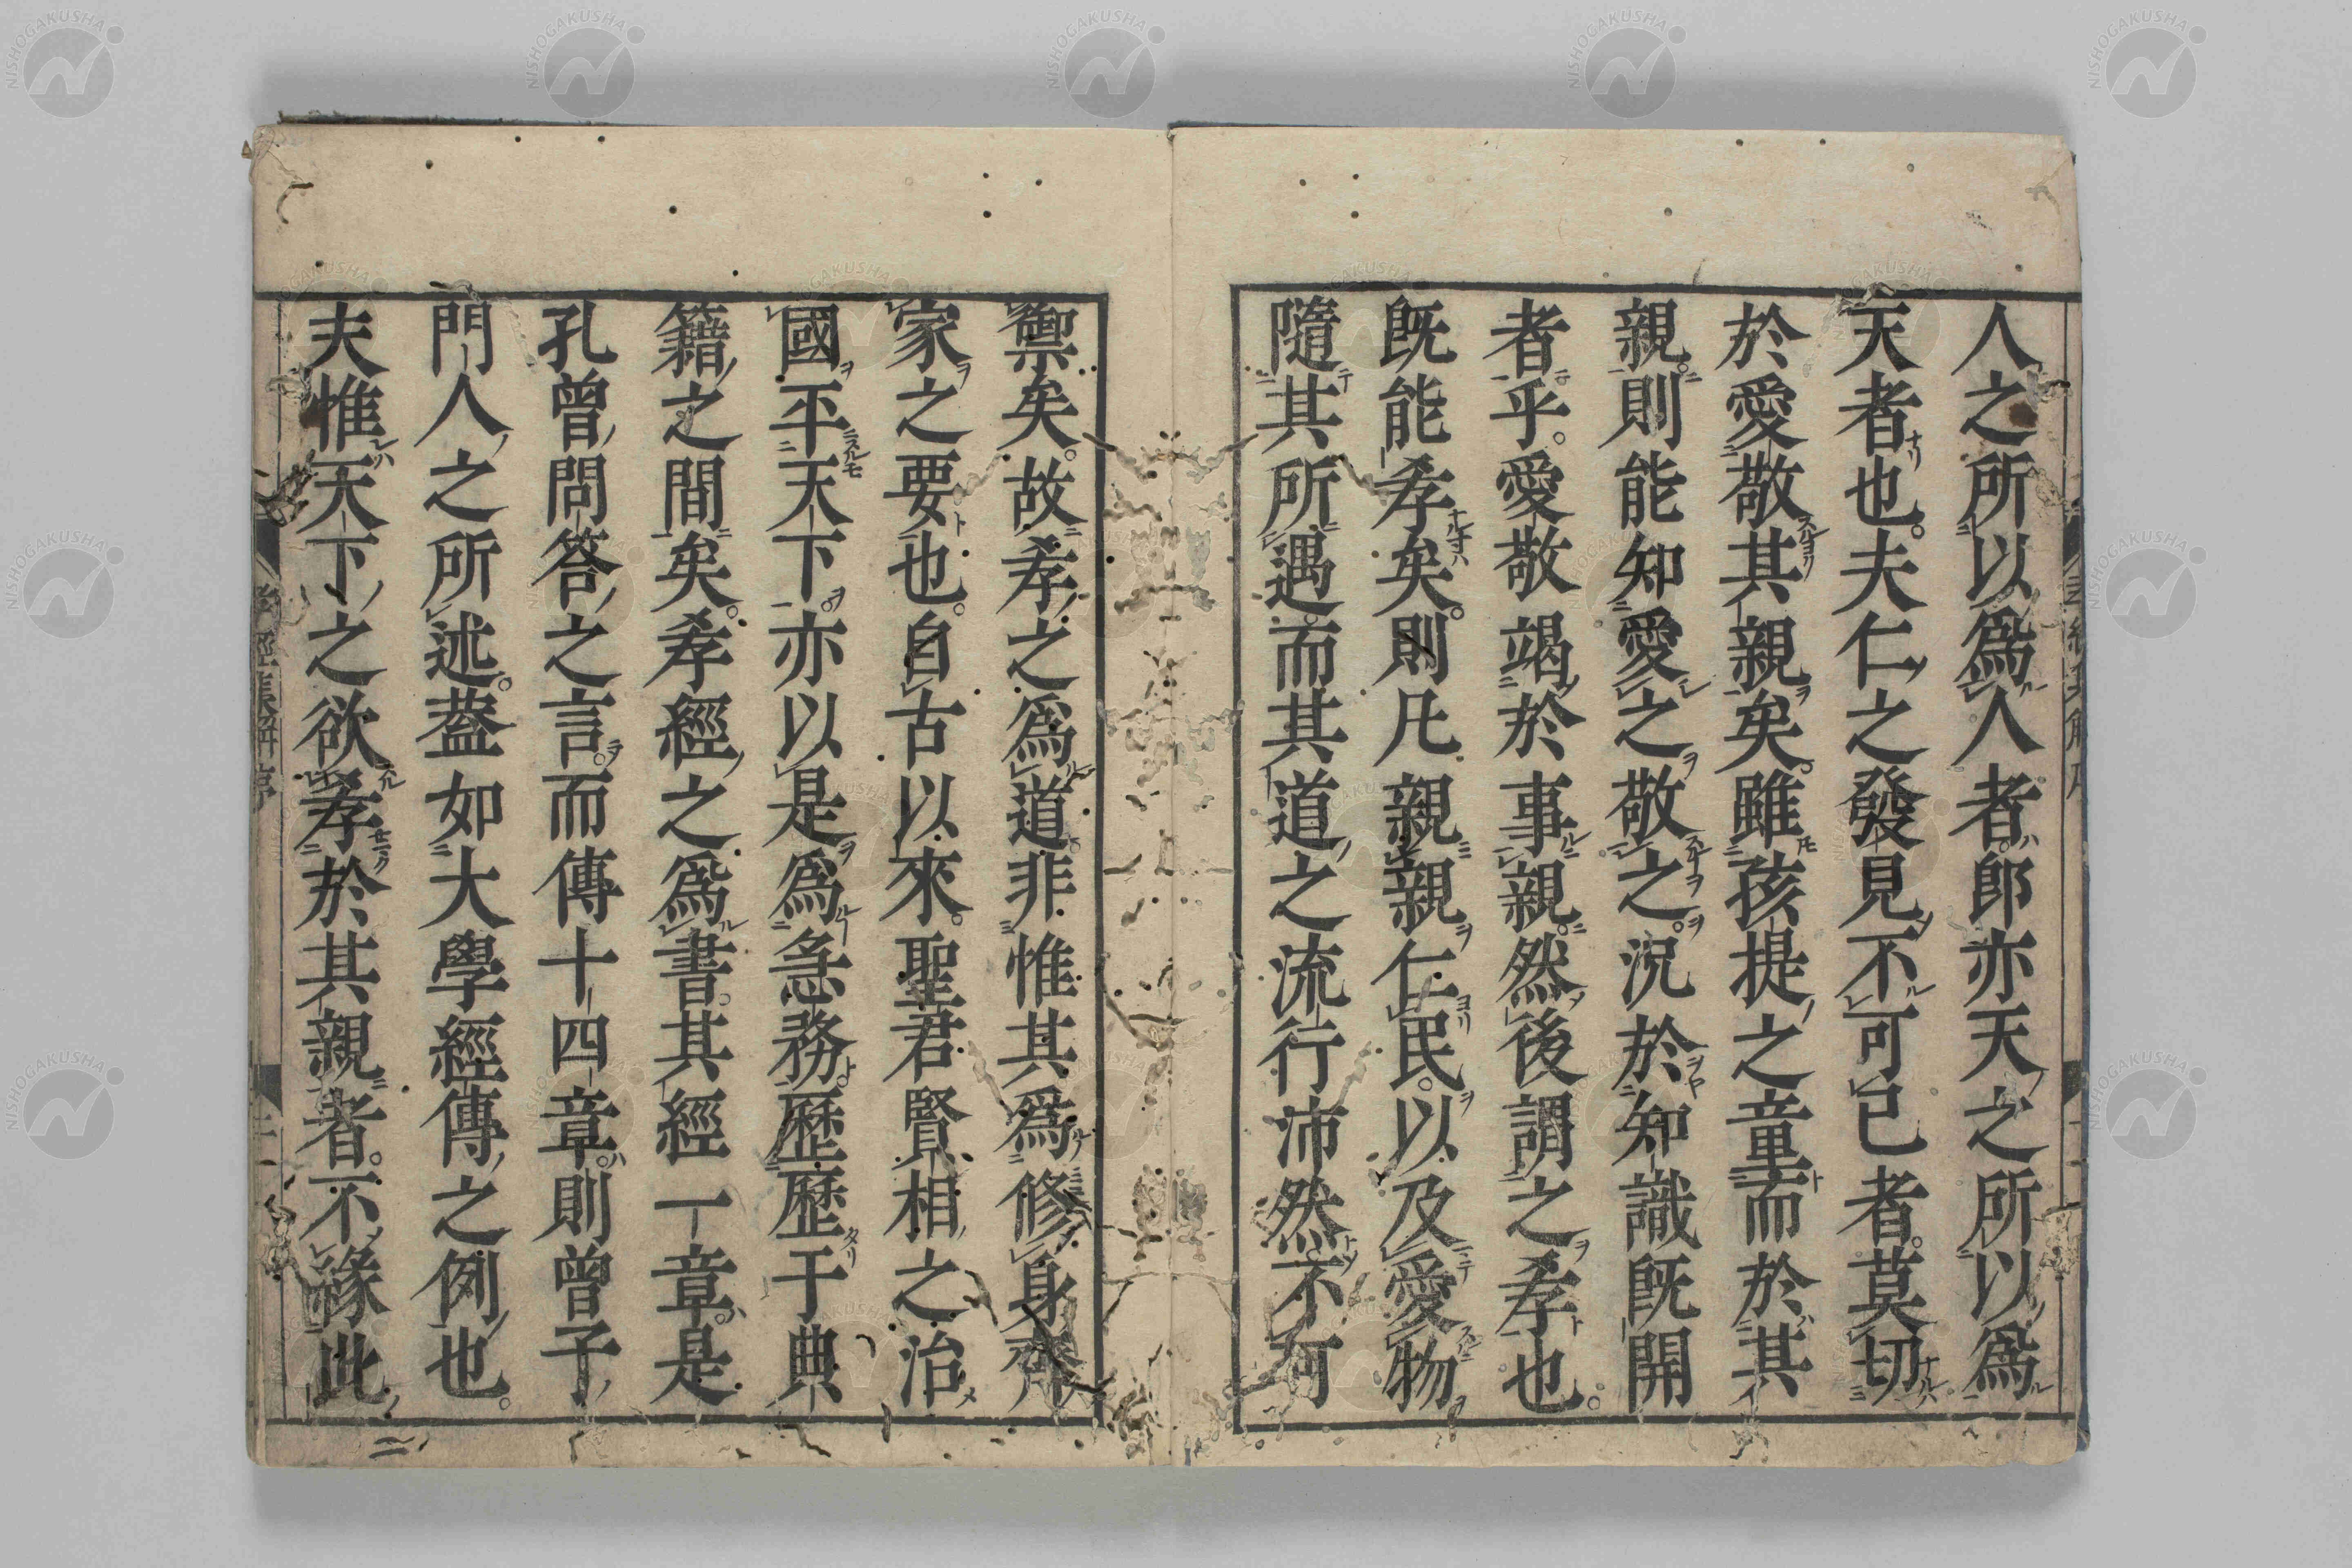 人之所以爲人者。郎亦天之所以爲
天者也。夫仁之發見不可已者。莫切
於愛敬其親矣。雖孩提之童而於其
親。則能知愛之敬之。況於知識既開
者乎。愛敬竭於事親。然後謂之孝也。
既能孝矣。則凡親親仁民。以及愛物
隨其所遇。而其道之流行沛然。不可
禦矣。故孝之爲道非惟其爲修身齊
家之要也。自古以來。聖君賢相之治
國平天下。亦以是爲急務。歷歷于典
籍之間矣。孝經之爲書。其經一章。是
孔曾問答之言。而傳十四章。則曾子
門人之所述。蓋如大學經傳之例也。
夫惟天下之欲孝於其親者。不緣此
孝經集解序
NISHOGAKUSHA